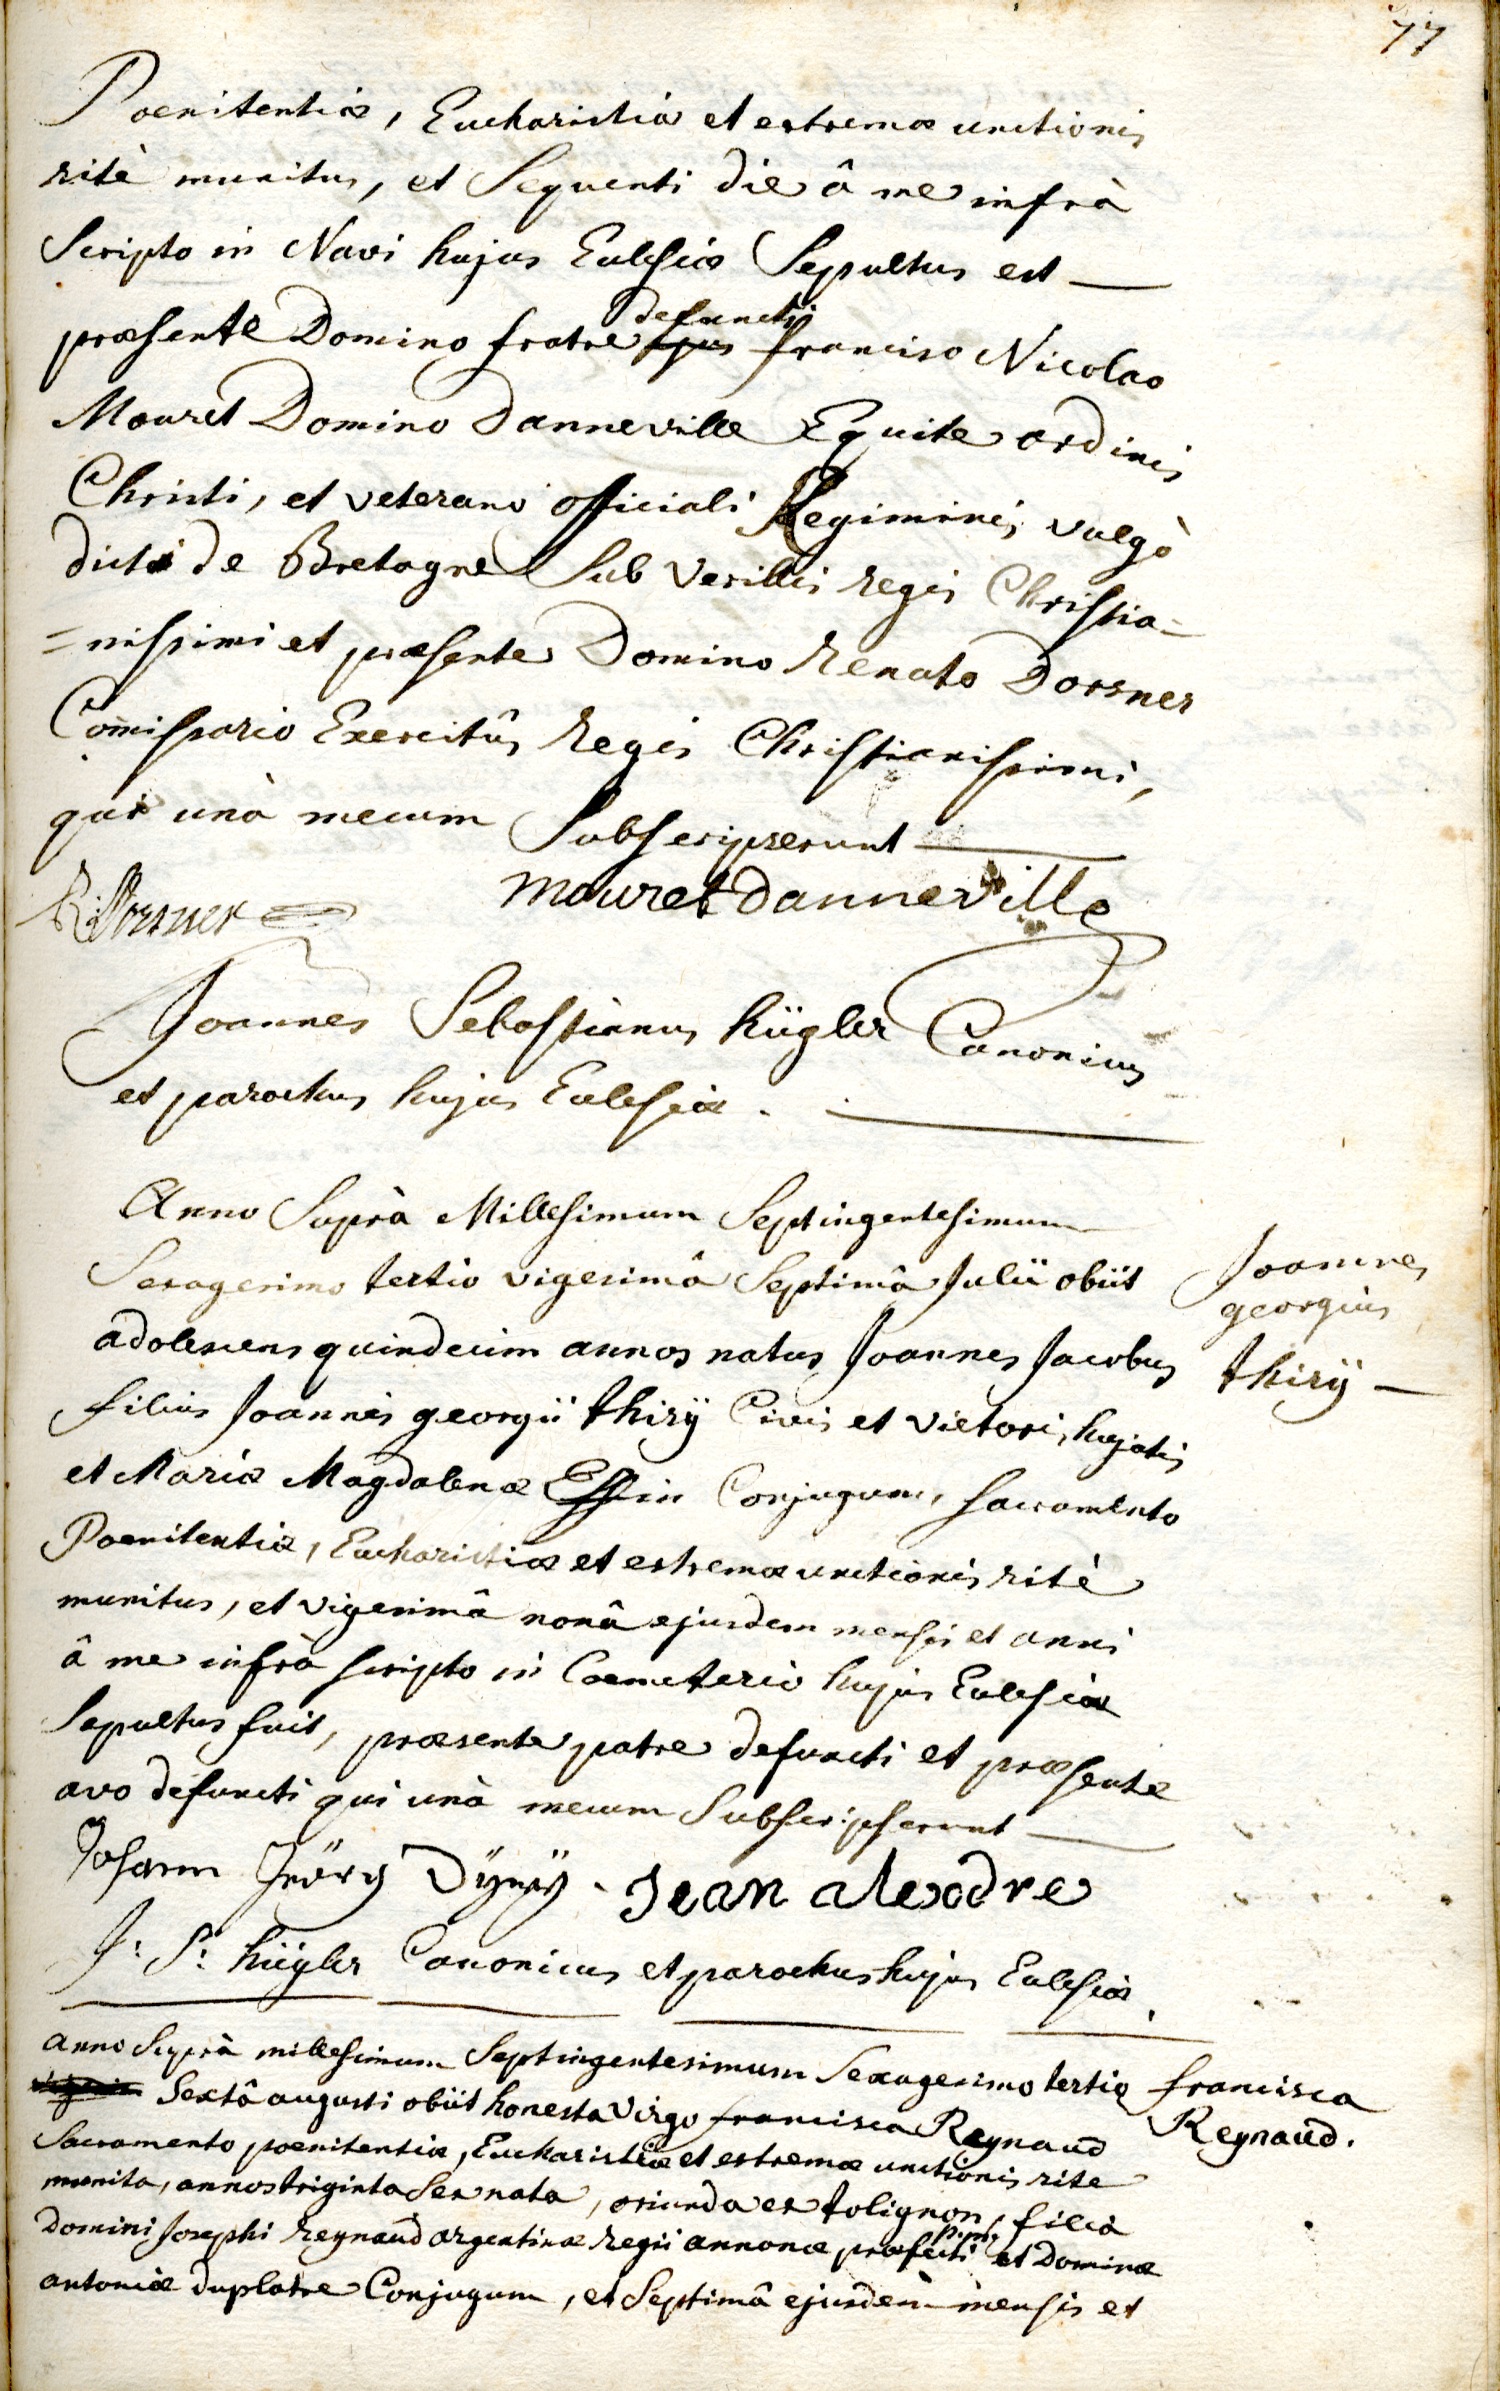 77
Poenitentiæ, Eucharistiæ et extremæ unctionis
ritè munitus, et Sequenti die â me infrà
Scripto in Navi hujus Eclesiæ Sepultus est —
præsente Domino fratre ejus defuncti francisco Nicolao
Mouret Domino Danneville Equite ordinis
Christi, et veterano officiali Regiminis vulgò
dicti de Bretagne Sub Vexillis regis Christia-
=nissimi et præsente Domino Renato Dorsner
Com̄issario Exercitûs Regis Christianissimi,
qui unà mecum Subscripserunt —
R: Dorsner mouret danneville
Joannes Sebastianus Kügler Canonicus
et parochus hujus Eclesiæ. —
Anno Suprà Millesimum Septingentesimum
Sexagesimo tertio vigesimâ Septimâ Julii obiit
adolescens quindecim annos natus Joannes Jacobus
filius Joannis georgii thirÿ Civis et vietoris hujatis
et Mariæ Magdalenæ Essin Conjugum, sacramento
Poenitentiæ, Eucharistiæ et extremæ unctionis ritè
munitus, et vigesimâ nonâ ejusdem mensis et anni
â me infrà scripto in Coemeterio hujus Eclesiæ
Sepultus fuit, præsente patre defuncti et præsente
avo defuncti qui unà mecum Subscripserunt —
Joannes
georgius
thirÿ —
Johann Jrörg Jean alexdre
J: S: Kügler Canonicus et parochus hujus Eclesiæ.
anno Suprà millesimum Septingentesimum Sexagesimo tertio
Sextâ augusti obiit honesta Virgo francisca Reynaud
Sacramento poenitentiæ, Eucharistiæ et extremæ unctionis rite
munita, annos triginta Sex nata, oriunda ex tolignon, filia
Domini Josephi Reynaud argentinæ regii annonæ præfecti p.m. et Dominæ
antoniæ duplatre Conjugum, et Septimâ ejusdem mensis et
francisca
Reynaud.